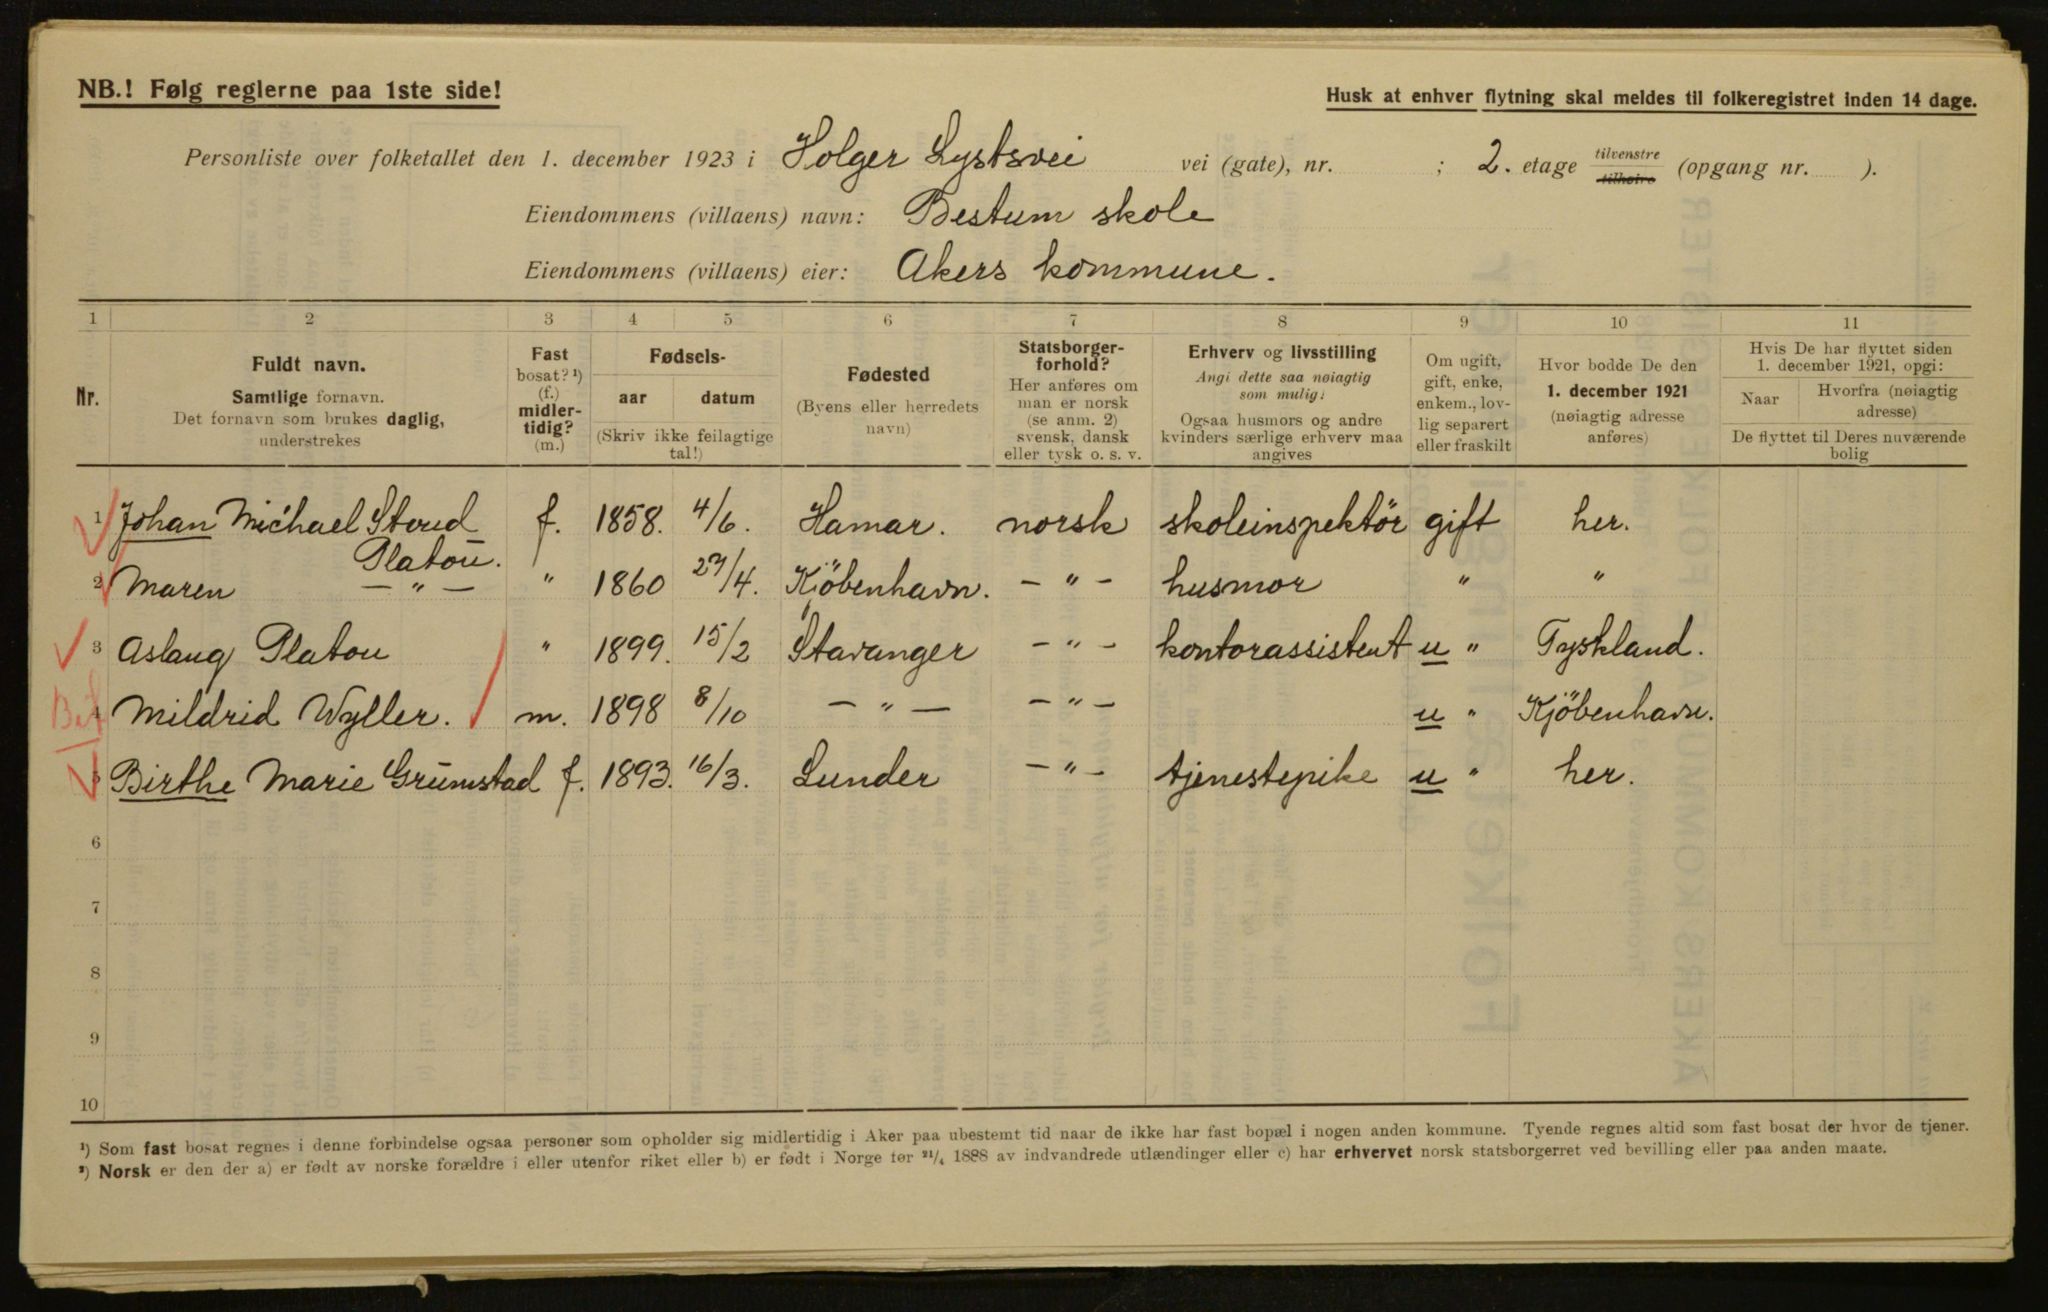 NB.! Følg reglerne paa 1ste side!
Husk at enhver flytning skal meldes til folkeregistret inden 14 dage.
Personliste over folketallet den 1. december 1923 i Holger Lystsvei vei (gate), nr. ; 2. etage tilvenstre tilhøire (opgang nr. ).
Eiendommens (villaens) navn: Bestum skole
Eiendommens (villaens) eier: Akers kommune.
1 2 3 4 5 6 7 8 9 10 11
Nr.
Fuldt navn.
Samtlige fornavn.
Det fornavn som brukes daglig,
understrekes
Fast
bosat? ¹)
(f.)
midler-
tidig?
(m.)
Fødsels-
aar datum
(Skriv ikke feilagtige
tal!)
Fødested
(Byens eller herredets
navn)
Statsborger-
forhold?
Her anføres om
man er norsk
(se anm. 2)
svensk, dansk
eller tysk o. s. v.
Erhverv og livsstilling
Angi dette saa nøiagtig
som mulig!
Ogsaa husmors og andre
kvinders særlige erhverv maa
angives
Om ugift,
gift, enke,
enkem., lov-
lig separert
eller fraskilt
Hvor bodde De den
1. december 1921
(nøiagtig adresse
anføres)
Hvis De har flyttet siden
1. december 1921, opgi:
Naar Hvorfra (nøiagtig
adresse)
De flyttet til Deres nuværende
bolig
1 Johan Michael Stoud f. 1858. 4/6. Hamar. norsk skoleinspektör gift her.
Platou.
2 Maren — " — " 1860 27/4. Kjöbenhavn. — " — husmor " "
3 Aslaug Platou " 1899. 15/2 Stavanger — " — kontorassistent u " Tyskland.
4 Mildrid Wyller. m. 1898 8/10 — " — — " — u " Kjöbenhavn.
5 Birthe Marie Grümstad f. 1893. 16/3. Lunder — " — tjenestepike u " her.
6
7
8
9
10
¹) Som fast bosat regnes i denne forbindelse ogsaa personer som opholder sig midlertidig i Aker paa ubestemt tid naar de ikke har fast bopæl i nogen anden kommune. Tyende regnes altid som fast bosat der hvor de tjener.
²) Norsk er den der a) er født av norske forældre i eller utenfor riket eller b) er født i Norge før ²¹/₄ 1888 av indvandrede utlændinger eller c) har erhvervet norsk statsborgerret ved bevilling eller paa anden maate.